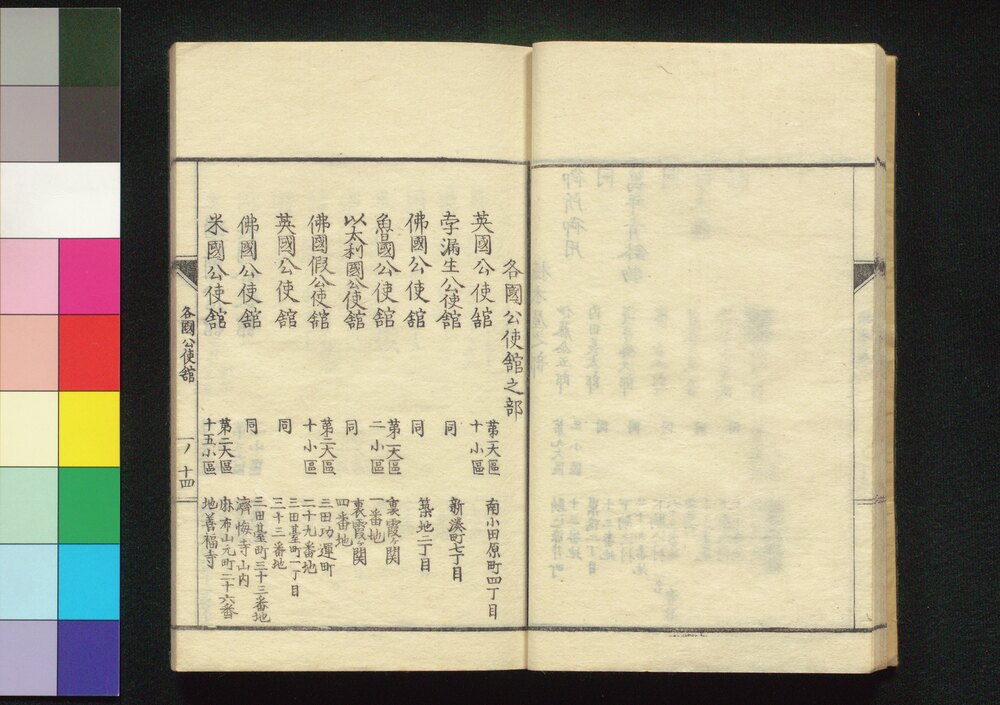 各國公使舘之部
英國公使舘 第一大區十小區 南小田原町四丁目
孛漏生公使舘 同 新湊町七丁目
佛國公使舘 同 築地二丁目
魯國公使舘 第一大區二小區 裏霞ヶ関一番地
以太利國公使舘 同 裏霞ヶ関四番地
佛國假公使舘 第二大區十小區 三田功運町二十九番地
英國公使舘 同 三田臺町一丁目三十三番地
佛國公使舘 同 三田臺町三十三番地濟悔寺山内
米國公使舘 第二大區十五小區 麻布山元町二十六番地善福寺
各國公使舘
一ノ十四